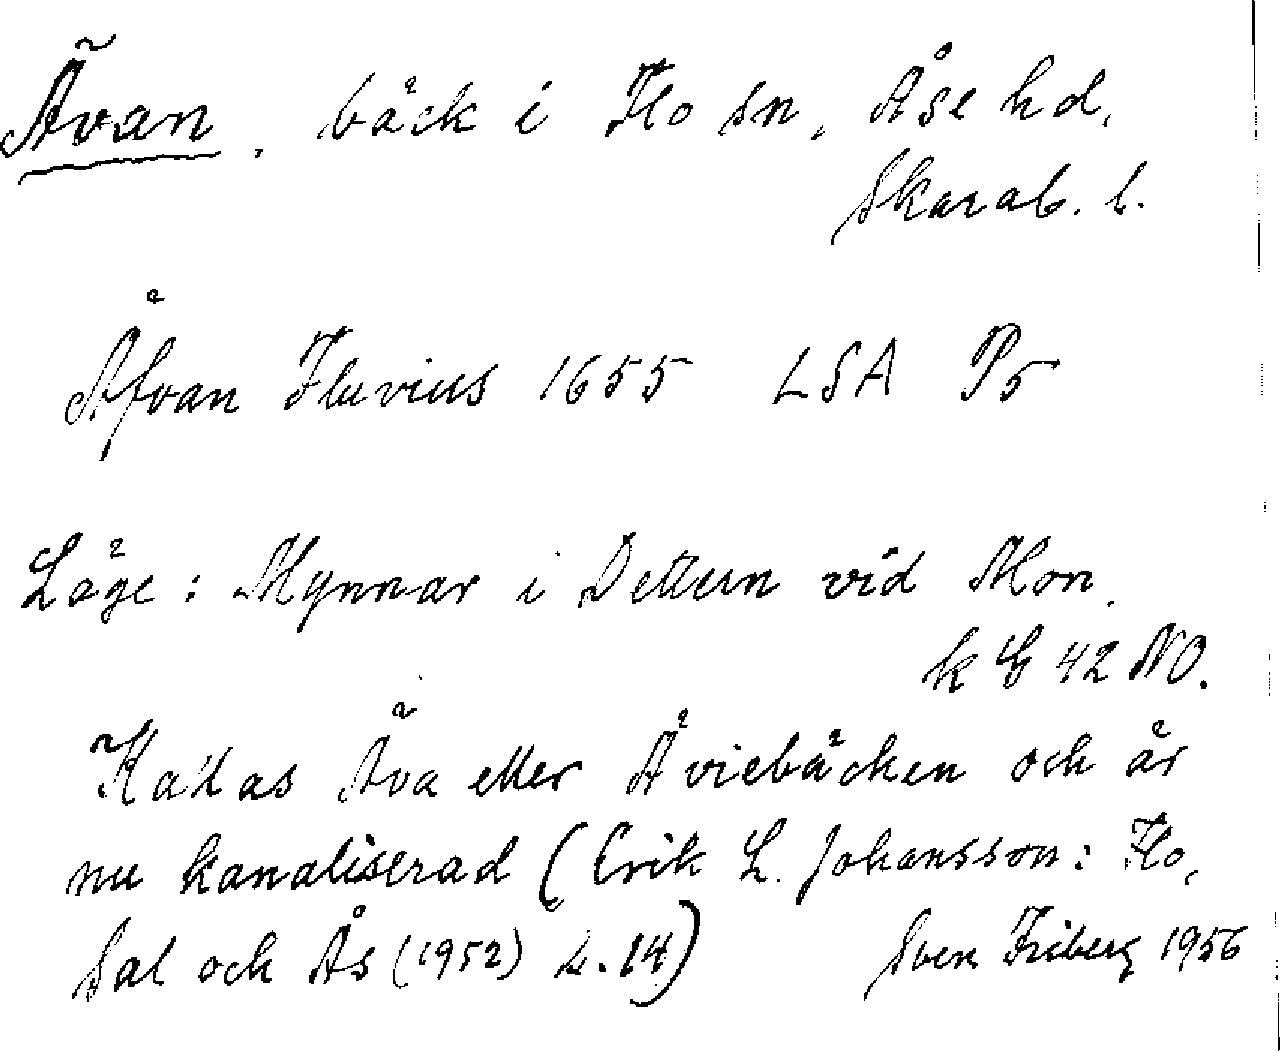 Ävan, bäck i Flo sn, Åse hd,
Skarab. l.
Åfvan Fluvius 1655 LSA P5
Läge: Mynnar i Dettern vid Mon.
k E 42 NO.
Kallas Åva eller Åviebäcken och är
nu kanaliserad (Erik L. Johansson: Flo,
Sal och Ås (1952) s. 14)
Sven Friberg 1956